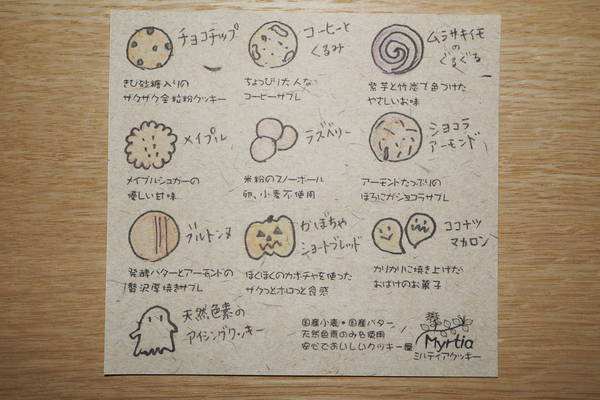 チョコチップ
きび砂糖入りの
ザクザク全粒粉クッキー
コーヒーと
くるみ
ちょっぴり大人な
コーヒーサブレ
ムラサキイモ
の
ぐるぐる
紫芋と竹炭で色づけた
やさしいお味
メイプル
メイプルシュガーの
優しい甘味
ラズベリー
米粉のスノーボール
卵、小麦不使用
ショコラ
アーモンド
アーモンドたっぷりの
ほろにがショコラサブレ
ブルトンヌ
発酵バターとアーモンドの
贅沢厚焼きサブレ
かぼちゃ
ショートブレッド
ほくほくのカボチャを使った
ザクっとホロっと食感
ココナツ
マカロン
カリカリに焼き上げた
おばけのお菓子
天然色素の
アイシングクッキー
国産小麦・国産バター
天然色素のみを使用
安心でおいしいクッキー屋
Myrtia
ミルティアクッキー